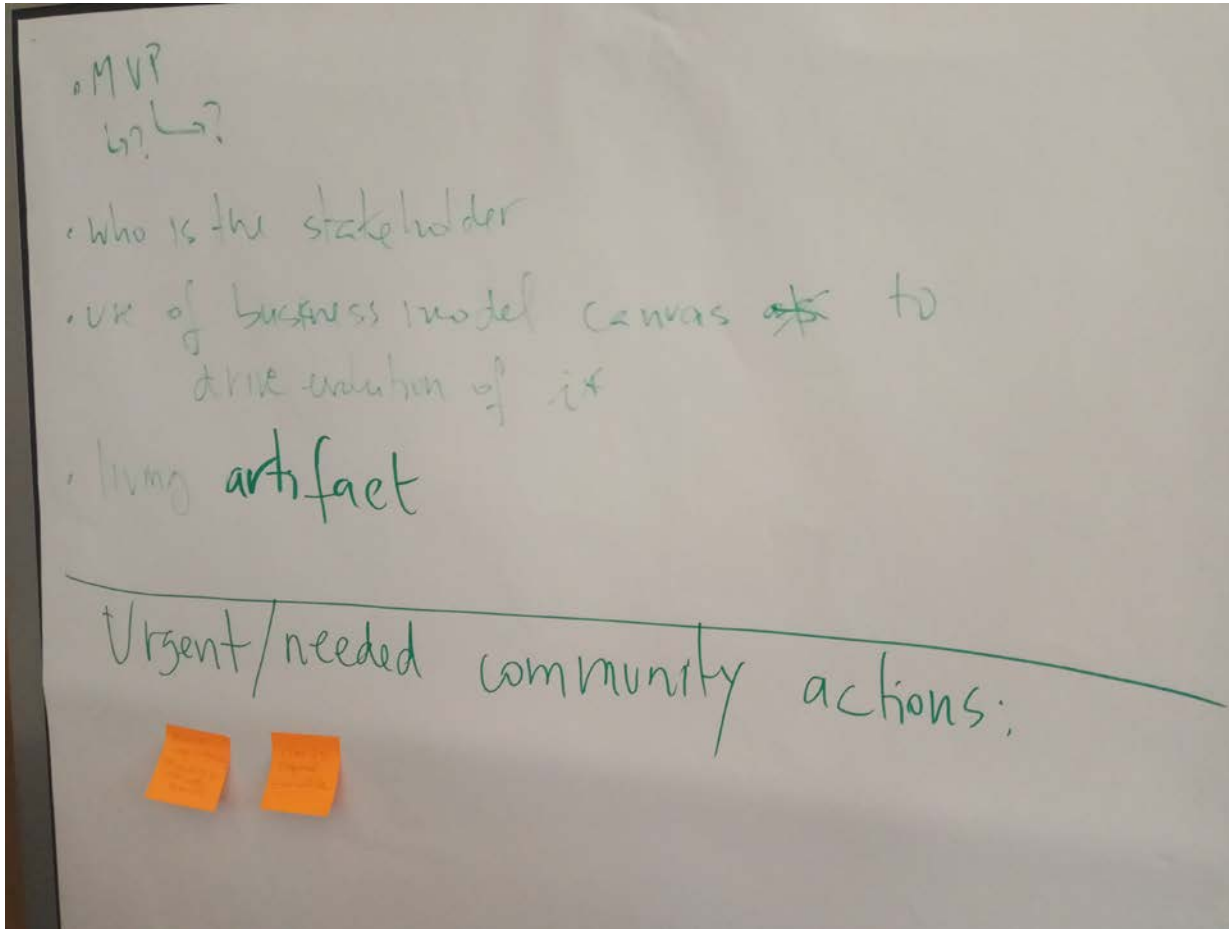 • MVP
↳? ↳?
• who is the stakeholder
• use of business model canvas to
drive evolution of i*
• living artifact
Urgent/needed community actions: